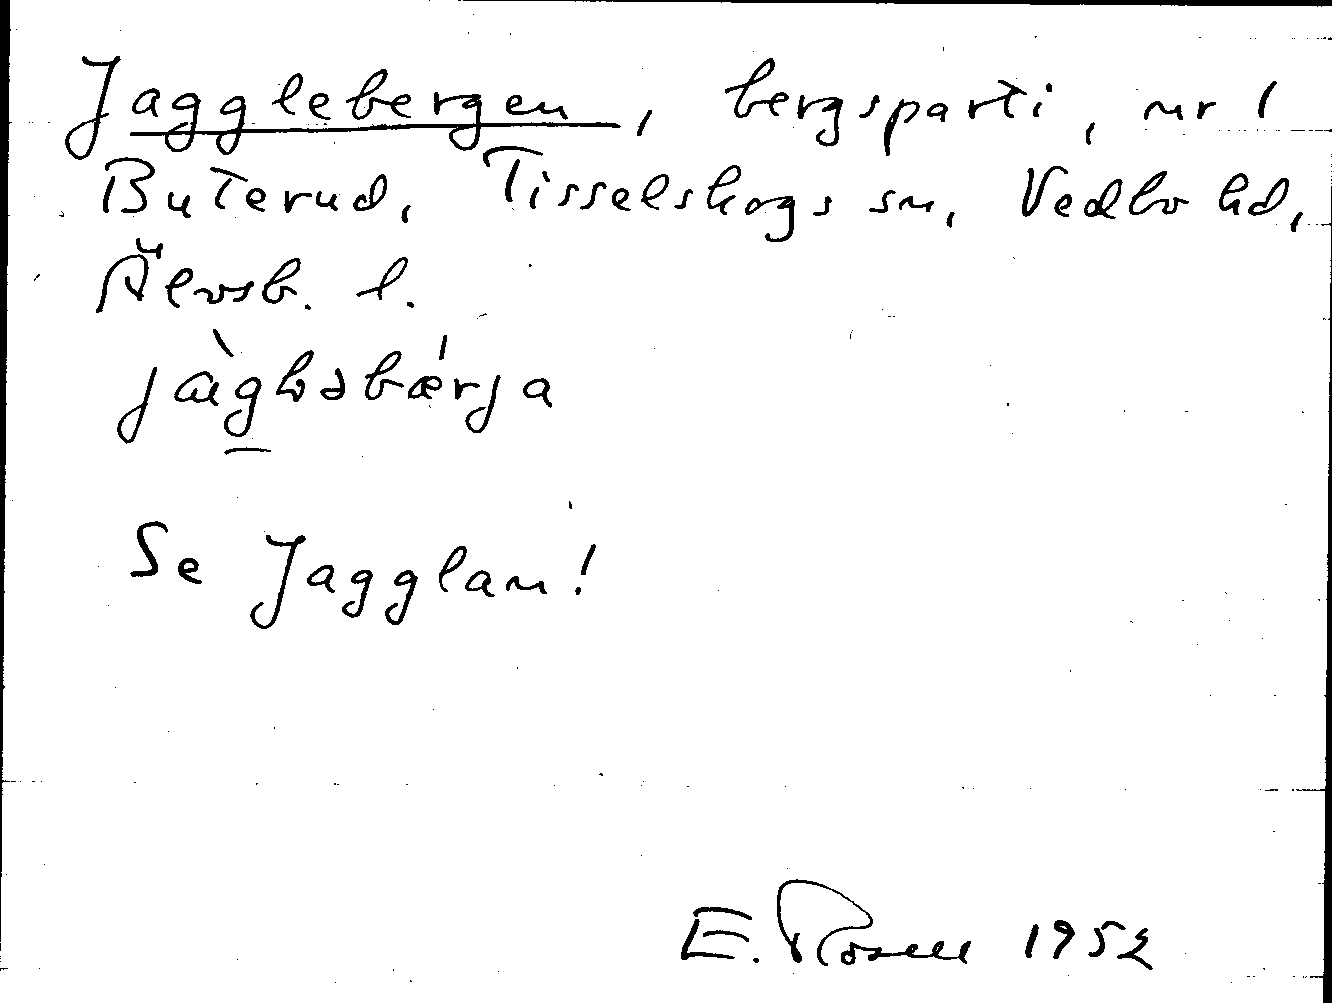 Jagglebergen, bergsparti, nr 1
Buterud, Tisselskogs sn, Vedbo hd,
Älvsb. l.
jæ̀gləbǽrja
Se Jagglan!
E. Rosell 1952